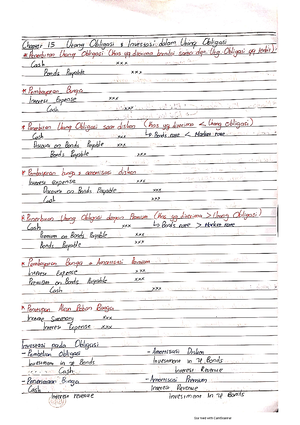 Chapter 15 Utang Obligasi & Investasi dalam Utang Obligasi
* Penerbitan Utang Obligasi (Kas yg diterima senilai sama dgn Utg Obligasi yg
Cash xxx
Bonds Payable xxx
* Pembayaran Bunga
Interest Expense xxx
Cash xxx
* Penerbitan Utang Obligasi saat diskon (Kas yg diterima < Utang Obligasi)
Cash xxx ↳ Bonds rate < Market rate
Discount on Bonds Payable xxx
Bonds Payable xxx
* Pembayaran bunga & amortisasi diskon
Interest expense xxx
Discount on Bonds Payable xxx
Cash xxx
* Penerbitan Utang Obligasi dengan Premium (Kas yg diterima > Utang Obligasi)
Cash xxx ↳ Bonds rate > Market rate
Premium on Bonds Payable xxx
Bonds Payable xxx
* Pembayaran Bunga & Amortisasi Premium
Interest Expense xxx
Premium on Bonds Payable xxx
Cash xxx
* Penutupan Akun Beban Bunga
Income Summary xxx
Interest Expense xxx
Investasi pada Obligasi
- Pembelian Obligasi
Investment in Bonds
Cash
- Penerimaan Bunga
Cash
Interest revenue
- Amortisasi Diskon
Investment in Bonds
Interest Revenue
- Amortisasi Premium
Interest Revenue
Investment in Bonds